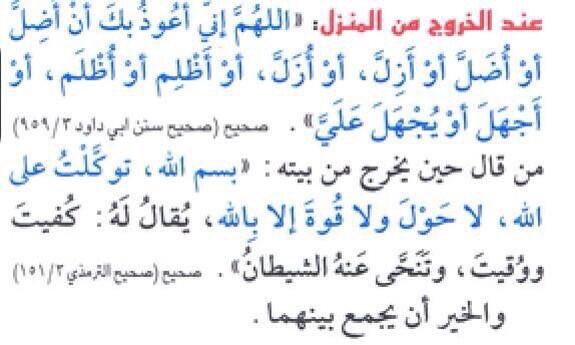 عند الخروج من المنزل: «اللهُمَّ إنِّي أعُوذُ بكَ أنْ أضِلَّ
أوْ أُضَلَّ أوْ أَزِلَّ، أوْ أُزَلَّ، أوْ أَظْلِم أوْ أُظْلَم، أوْ
أجْهَلَ أوْ يُجْهَلَ عَلَيَّ». صحيح (صحيح سنن ابي داود ٣/٩٥٩)
من قال حين يخرج من بيته: «بسم الله، توكَّلْتُ على
الله، لا حَوْلَ ولا قُوةَ إلا بِالله، يُقالُ لَهُ: كُفيتَ
ووُقيتَ، وتَنَحَّى عَنهُ الشيطانُ». صحيح (صحيح الترمذي ٣/١٥١)
والخير أن يجمع بينهما.